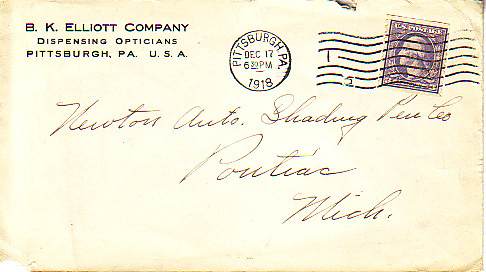 B. K. ELLIOTT COMPANY
DISPENSING OPTICIANS
PITTSBURGH, PA. U. S. A.
PITTSBURGH, PA.
DEC 17
630 PM
1918
1
Newton Auto. Shading Pen Co
Pontiac
Mich.